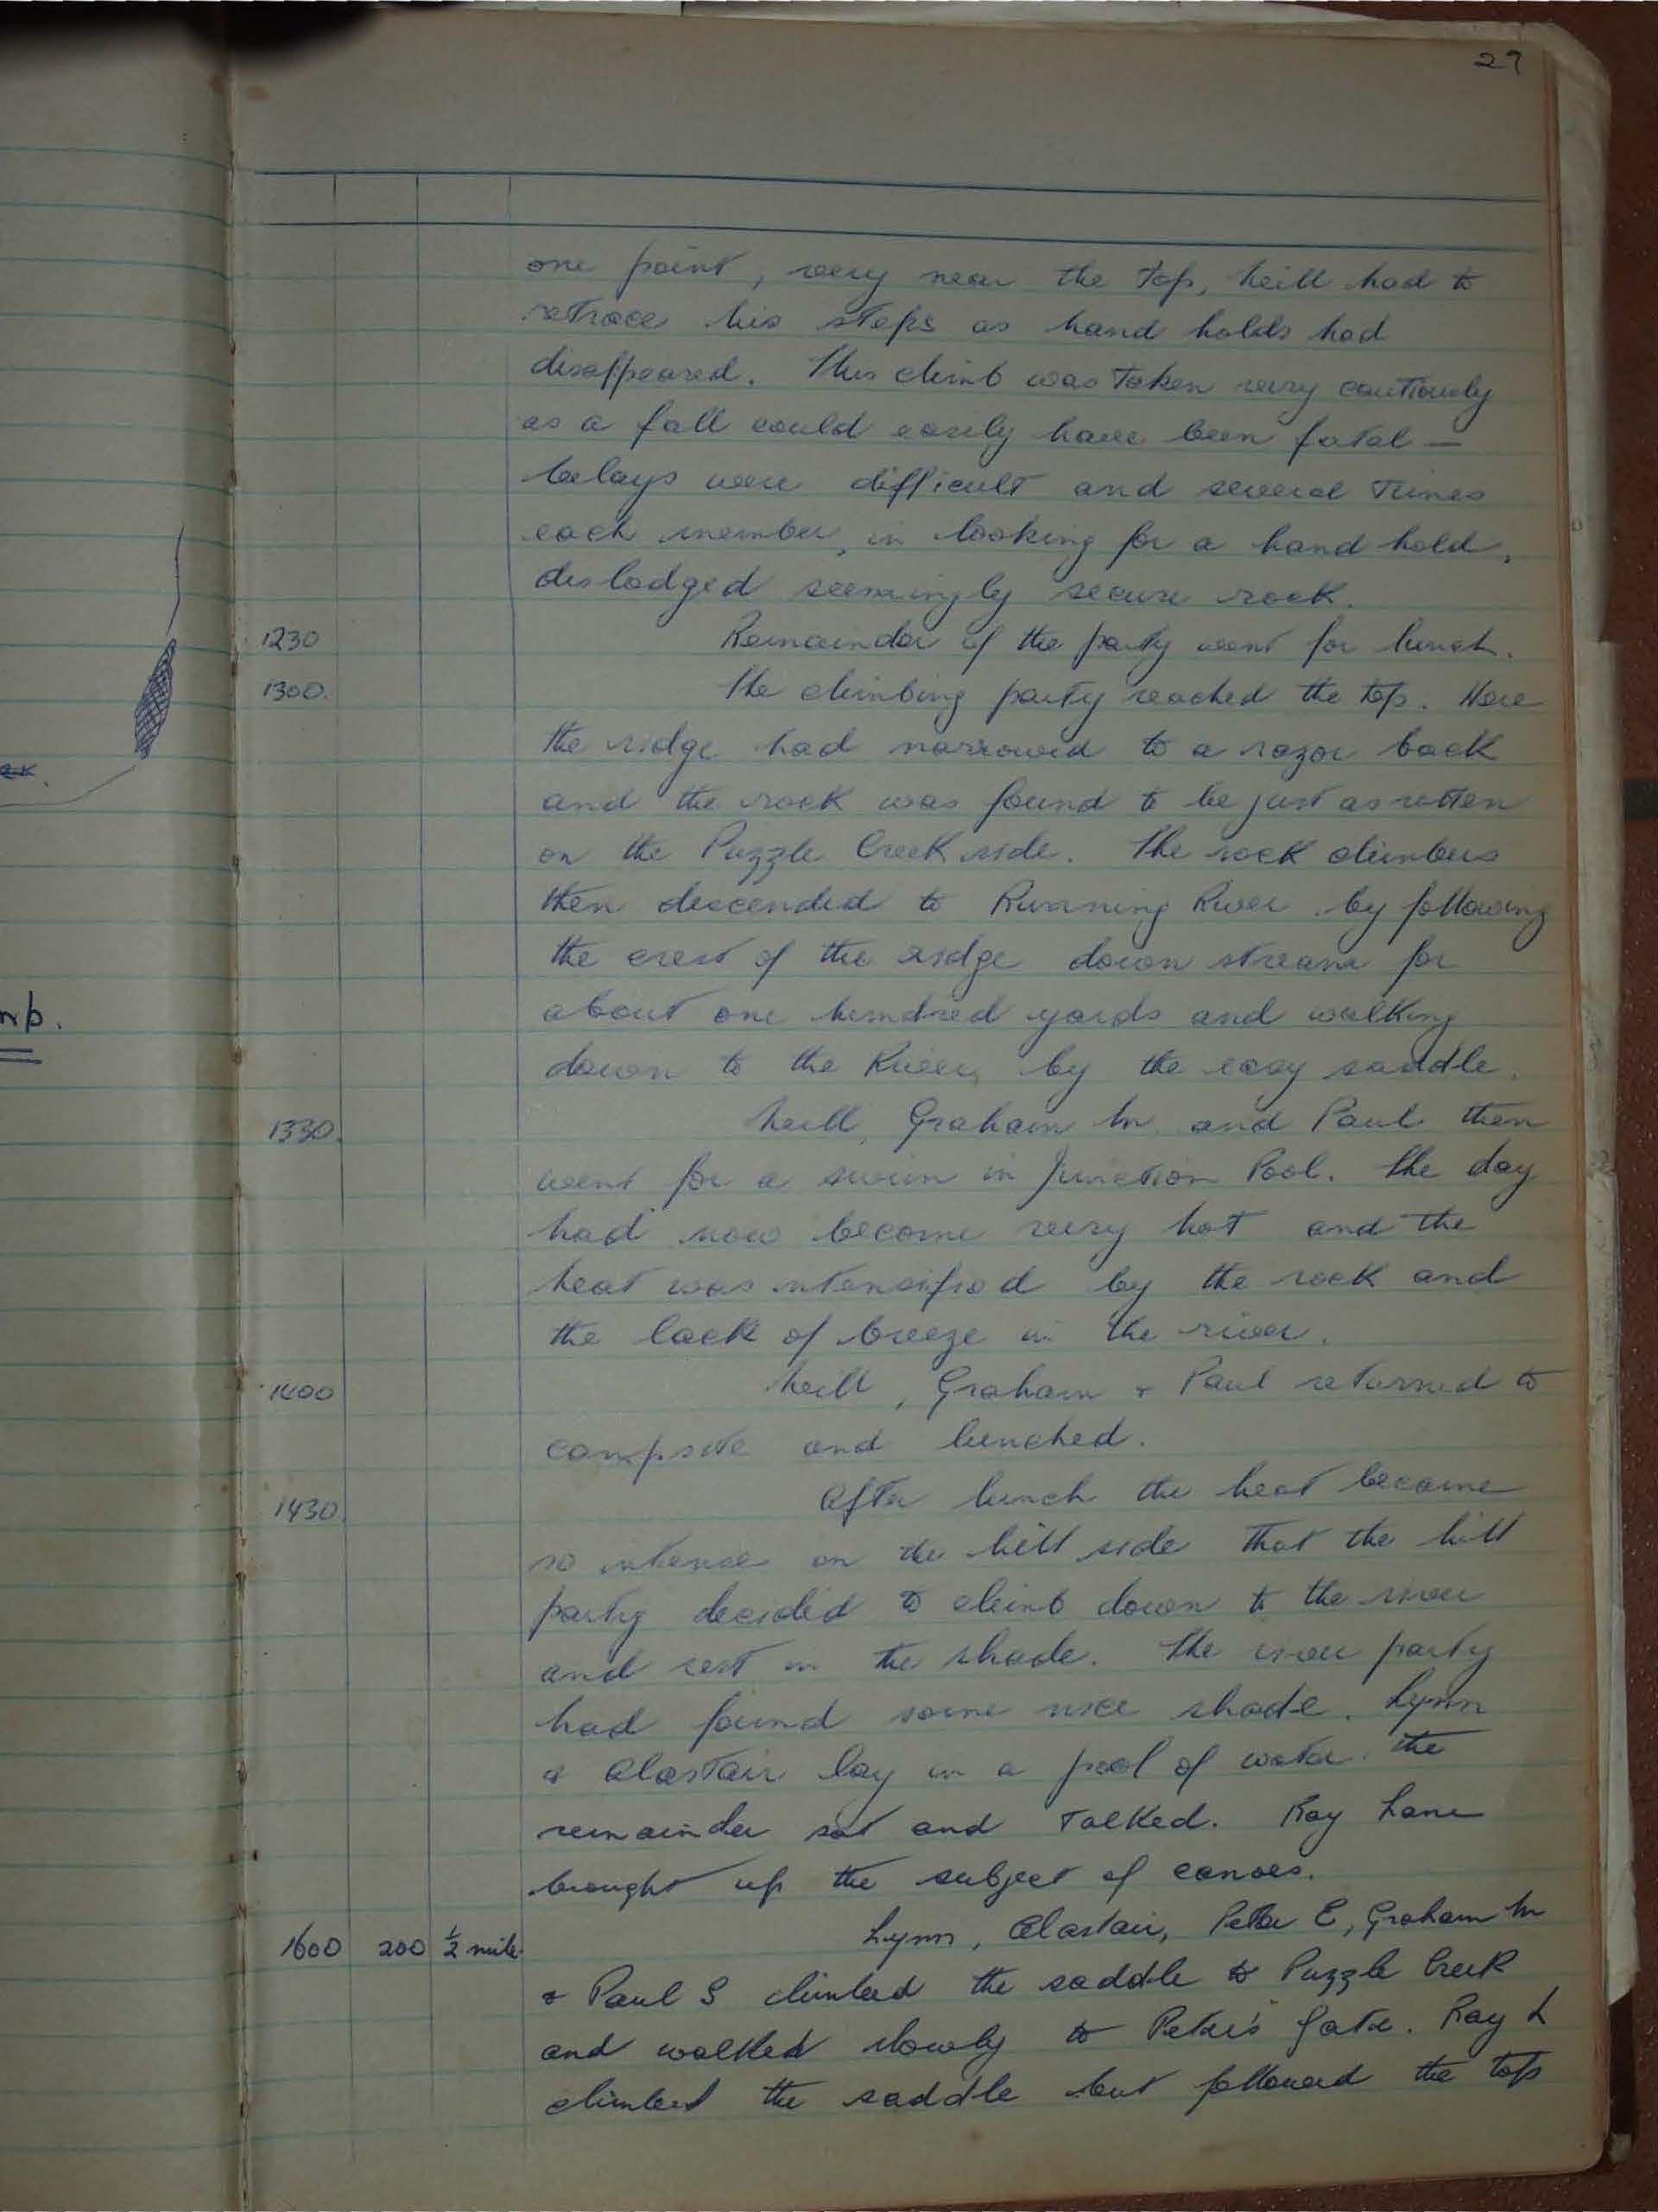 27
one point, very near the top, Neill had to
retrace his steps as hand holds had
disappeared. This climb was taken very cautiously
as a fall could easily have been fatal —
belays were difficult and several times
each member, in looking for a hand hold,
dislodged seemingly secure rock.
1230 Remainder of the party went for lunch.
1300. The climbing party reached the top. Here
the ridge had narrowed to a razor back
and the rock was found to be just as rotten
on the Puzzle Creek side. The rock climbers
then descended to Running River by following
the crest of the ridge down stream for
about one hundred yards and walking
down to the River by the easy saddle.
1330. Neill, Graham M. and Paul then
went for a swim in Junction Pool. The day
had now become very hot and the
heat was intensified by the rock and
the lack of breeze in the river.
1400 Neill, Graham & Paul returned to
campsite and lunched.
1430. After lunch the heat became
so intense on the hill side that the hill
party decided to climb down to the river
and rest in the shade. The river party
had found some nice shade. Lynn
& Alastair lay in a pool of water. The
remainder sat and talked. Ray Lane
brought up the subject of canoes.
1600 200 ½ mile. Lynn, Alastair, Peter E, Graham M
& Paul S climbed the saddle to Puzzle Creek
and walked slowly to Peter's Gate. Ray L
climbed the saddle but followed the top